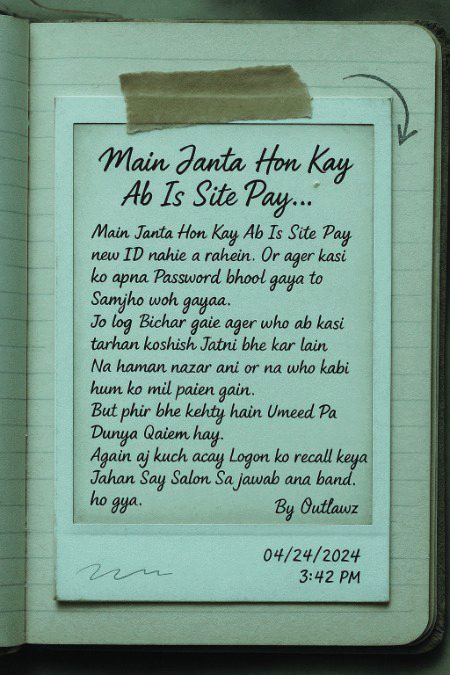 Main Janta Hon Kay
Ab Is Site Pay...
Main Janta Hon Kay Ab Is Site Pay
new ID nahie a rahein. Or ager kasi
ko apna Password bhool gaya to
Samjho woh gayaa.
Jo log Bichar gaie ager who ab kasi
tarhan koshish Jatni bhe kar lain
Na haman nazar ani or na who kabi
hum ko mil paien gain.
But phir bhe kehty hain Umeed Pa
Dunya Qaiem hay.
Again aj kuch acay Logon ko recall keya
Jahan Say Salon Sa jawab ana band.
ho gya.
By Outlawz
04/24/2024
3:42 PM